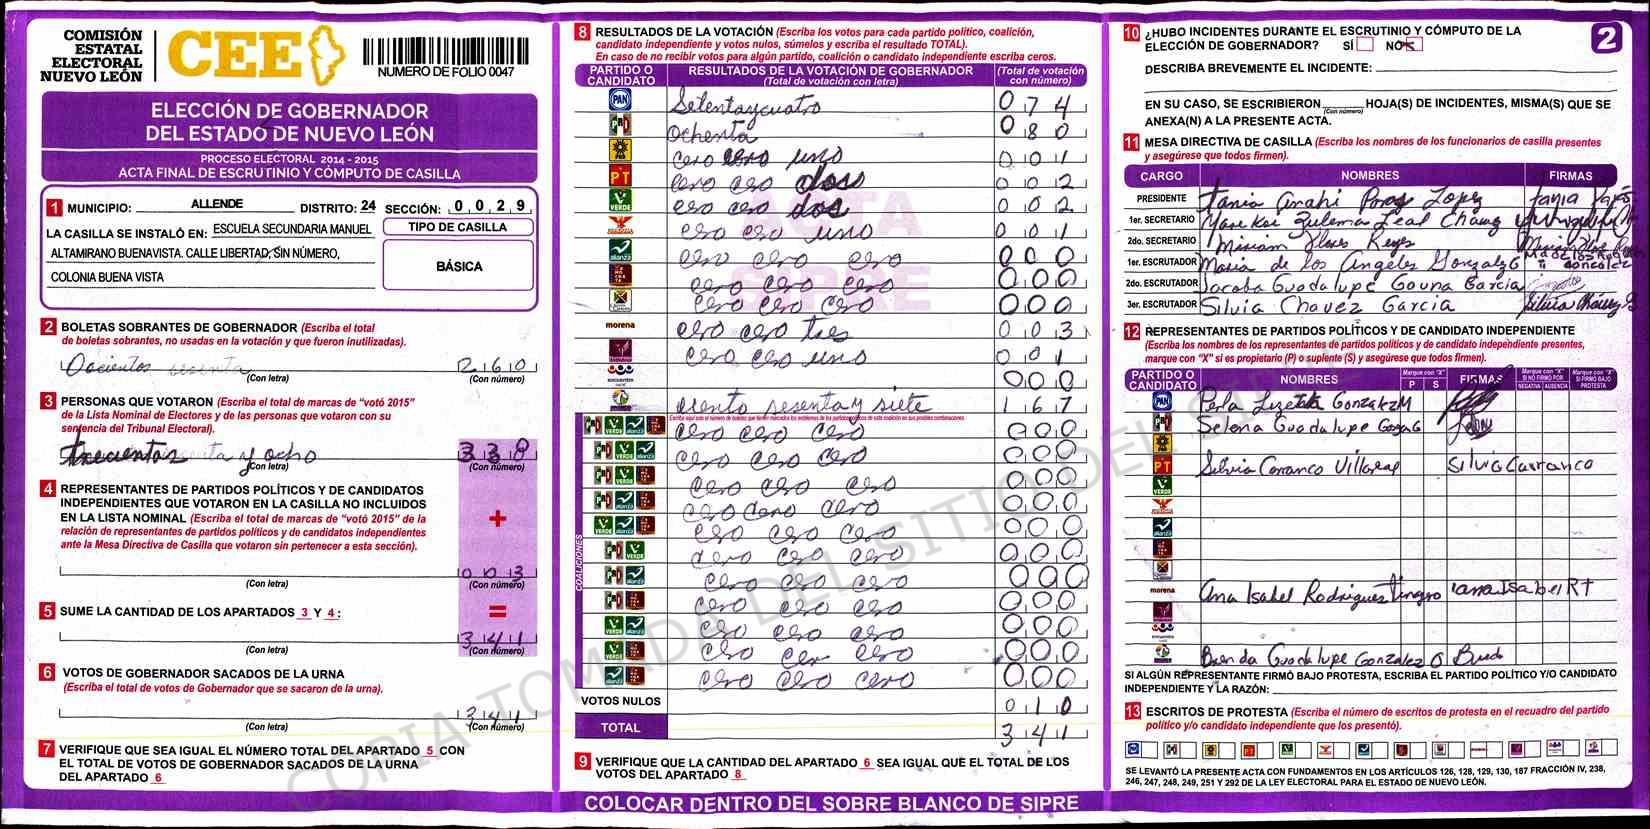 COMISIÓN
ESTATAL
ELECTORAL
NUEVO LEÓN
CEE
NUMERO DE FOLIO 0047
ELECCIÓN DE GOBERNADOR
DEL ESTADO DE NUEVO LEÓN
PROCESO ELECTORAL 2014 - 2015
ACTA FINAL DE ESCRUTINIO Y CÓMPUTO DE CASILLA
1 MUNICIPIO: ALLENDE DISTRITO: 24 SECCIÓN: 0 0 2 9
LA CASILLA SE INSTALÓ EN: ESCUELA SECUNDARIA MANUEL
ALTAMIRANO BUENAVISTA. CALLE LIBERTAD, SIN NÚMERO,
COLONIA BUENA VISTA
TIPO DE CASILLA
BÁSICA
2 BOLETAS SOBRANTES DE GOBERNADOR (Escriba el total
de boletas sobrantes, no usadas en la votación y que fueron inutilizadas).
Docientos sesenta 2 6 0
(Con letra) (Con número)
3 PERSONAS QUE VOTARON (Escriba el total de marcas de "votó 2015"
de la Lista Nominal de Electores y de las personas que votaron con su
sentencia del Tribunal Electoral).
trecientos y ocho 3 3 8
(Con letra) (Con número)
4 REPRESENTANTES DE PARTIDOS POLÍTICOS Y DE CANDIDATOS
INDEPENDIENTES QUE VOTARON EN LA CASILLA NO INCLUIDOS
EN LA LISTA NOMINAL (Escriba el total de marcas de "votó 2015" de la
relación de representantes de partidos políticos y de candidatos independientes
ante la Mesa Directiva de Casilla que votaron sin pertenecer a esta sección).
+
0 0 3
(Con letra) (Con número)
5 SUME LA CANTIDAD DE LOS APARTADOS 3 Y 4:
=
3 4 1
(Con letra) (Con número)
6 VOTOS DE GOBERNADOR SACADOS DE LA URNA
(Escriba el total de votos de Gobernador que se sacaron de la urna).
3 4 1
(Con letra) (Con número)
7 VERIFIQUE QUE SEA IGUAL EL NÚMERO TOTAL DEL APARTADO 5 CON
EL TOTAL DE VOTOS DE GOBERNADOR SACADOS DE LA URNA
DEL APARTADO 6
8 RESULTADOS DE LA VOTACIÓN (Escriba los votos para cada partido político, coalición,
candidato independiente y votos nulos, súmelos y escriba el resultado TOTAL).
En caso de no recibir votos para algún partido, coalición o candidato independiente escriba ceros.
PARTIDO O CANDIDATO
RESULTADOS DE LA VOTACIÓN DE GOBERNADOR
(Total de votación con letra)
(Total de votación con número)
PAN Setentaycuatro 0 7 4
PRI Ochenta 0 8 0
PRD cero cero uno 0 0 1
PT cero cero dos 0 0 2
VERDE cero cero dos 0 0 2
cero cero uno 0 0 1
alianza cero cero cero 0 0 0
cero cero cero 0 0 0
cero cero cero 0 0 0
morena cero cero tres 0 0 3
cero cero uno 0 0 1
encuentro 0 0 0
ciento sesenta y siete 1 6 7
COALICIONES
cero cero cero 0 0 0
cero cero cero 0 0 0
cero cero cero 0 0 0
cero cero cero 0 0 0
cero cero cero 0 0 0
cero cero cero 0 0 0
cero cero cero 0 0 0
cero cero cero 0 0 0
cero cero cero 0 0 0
cero cero cero 0 0 0
cero cero cero 0 0 0
VOTOS NULOS 0 1 0
TOTAL 3 4 1
9 VERIFIQUE QUE LA CANTIDAD DEL APARTADO 6 SEA IGUAL QUE EL TOTAL DE LOS
VOTOS DEL APARTADO 8
COLOCAR DENTRO DEL SOBRE BLANCO DE SIPRE
ACTA
SIPRE
COPIA TOMADA DEL SITIO DEL SI
2
10 ¿HUBO INCIDENTES DURANTE EL ESCRUTINIO Y CÓMPUTO DE LA
ELECCIÓN DE GOBERNADOR? SÍ NO X
DESCRIBA BREVEMENTE EL INCIDENTE:
EN SU CASO, SE ESCRIBIERON (Con número) HOJA(S) DE INCIDENTES, MISMA(S) QUE SE
ANEXA(N) A LA PRESENTE ACTA.
11 MESA DIRECTIVA DE CASILLA (Escriba los nombres de los funcionarios de casilla presentes
y asegúrese que todos firmen).
CARGO NOMBRES FIRMAS
PRESIDENTE Tania Anahi Lopez
1er. SECRETARIO Zulema Leal
2do. SECRETARIO Miriam Flores Reyes
1er. ESCRUTADOR Maria de los Angeles Gonzalez G
2do. ESCRUTADOR Jacoba Guadalupe Garcia
3er. ESCRUTADOR Silvia Chavez Garcia
12 REPRESENTANTES DE PARTIDOS POLÍTICOS Y DE CANDIDATO INDEPENDIENTE
(Escriba los nombres de los representantes de partidos políticos y de candidato independiente presentes,
marque con "X" si es propietario (P) o suplente (S) y asegúrese que todos firmen).
PARTIDO O CANDIDATO NOMBRES Marque con "X" P S FIRMAS Marque con "X" SI NO FIRMÓ POR NEGATIVA AUSENCIA Marque con "X" SI FIRMÓ BAJO PROTESTA
PAN Perla Lizeth Gonzalez M
PRI Selena Guadalupe
PRD
PT Silvia Carranco Villareal Silvia Carranco
VERDE
alianza
morena Ana Isabel Rodriguez ana Isabel RT
encuentro
Brenda Guadalupe Gonzalez G
SI ALGÚN REPRESENTANTE FIRMÓ BAJO PROTESTA, ESCRIBA EL PARTIDO POLÍTICO Y/O CANDIDATO
INDEPENDIENTE Y LA RAZÓN:
13 ESCRITOS DE PROTESTA (Escriba el número de escritos de protesta en el recuadro del partido
político y/o candidato independiente que los presentó).
SE LEVANTÓ LA PRESENTE ACTA CON FUNDAMENTOS EN LOS ARTÍCULOS 126, 128, 129, 130, 187 FRACCIÓN IV, 238,
246, 247, 248, 249, 251 Y 292 DE LA LEY ELECTORAL PARA EL ESTADO DE NUEVO LEÓN.